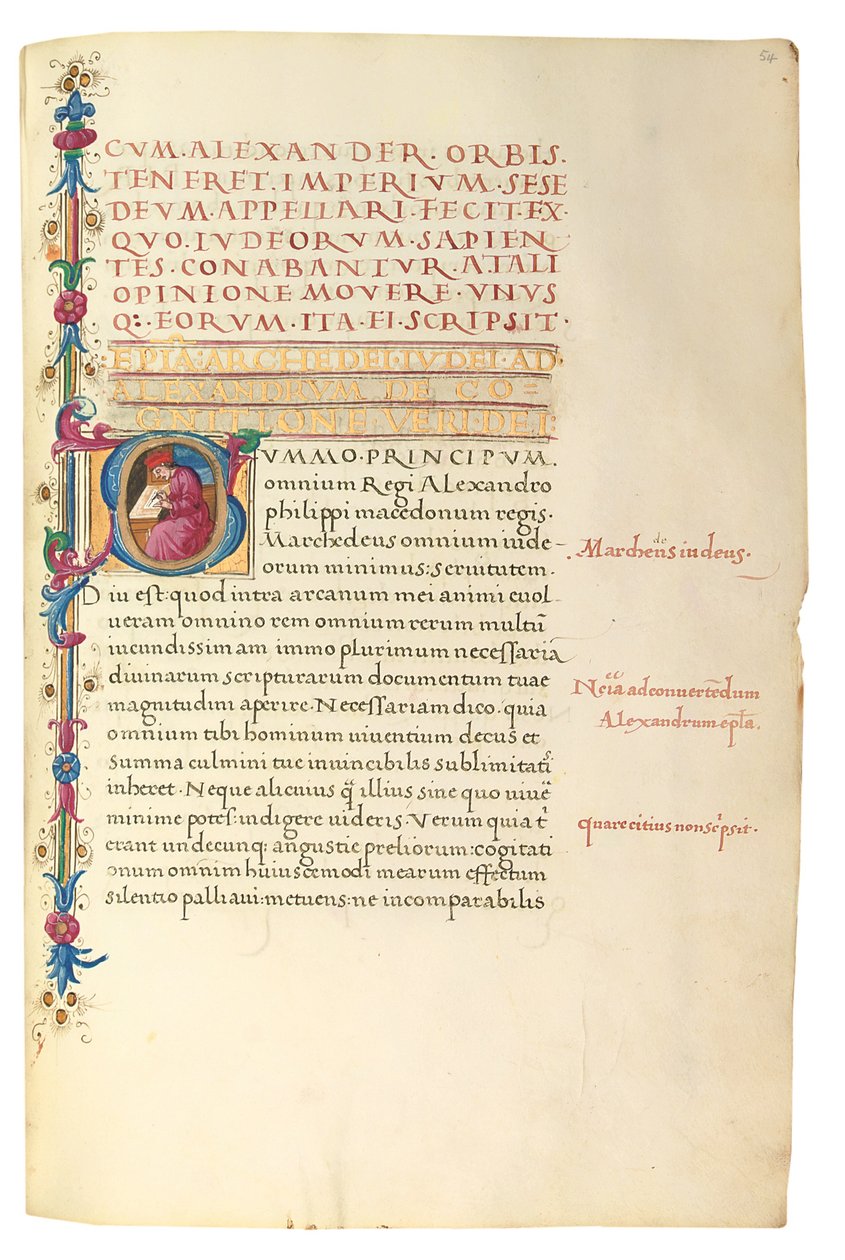 54
CVM.ALEXANDER. ORBIS.
TENERET.IMPERIVM.SESE
DEVM.APPELLARI.FECIT.EX.
QVO.IVDEORVM.SAPIEN
TES.CONABANTVR.A.TALI
OPINIONE MOVERE.VNVS
Q:.EORVM.ITA.EI.SCRIPSIT.
EPĪA:ARCHEDEI.IVDEI.AD
ALEXANDRVM DE CO=
GNITIONE VERI.DEI:
SVMMO.PRINCIPVM.
omnium Regi ALexandro
philippi macedonum regis.
Marchedeus omnium iude-
orum minimus: seruitutem.
Diu est: quod intra arcanum mei animi euol
ueram omnino rem omnium rerum multū
iucundissimam immo plurimum necessariā
diuinarum scripturarum documentum tuae
magnitudini aperire. Necessariam dico. quia
omnium tibi hominum uiuentium decus et
summa culmini tue inuincibilis sublimitati
inheret. Neque alicuius illius sine quo uiue
minime potes: indigere uideris. Verum quia
erant undecunq; angustie preliorum: cogitati
onum omnim huiuscemodi mearum effectum
silentio palliaui: metuens: ne incomparabilis
Marcheus iudeus.
de
Ncīa ad conuertēdum
Alexandrum epła.
quare citius non scpsit.